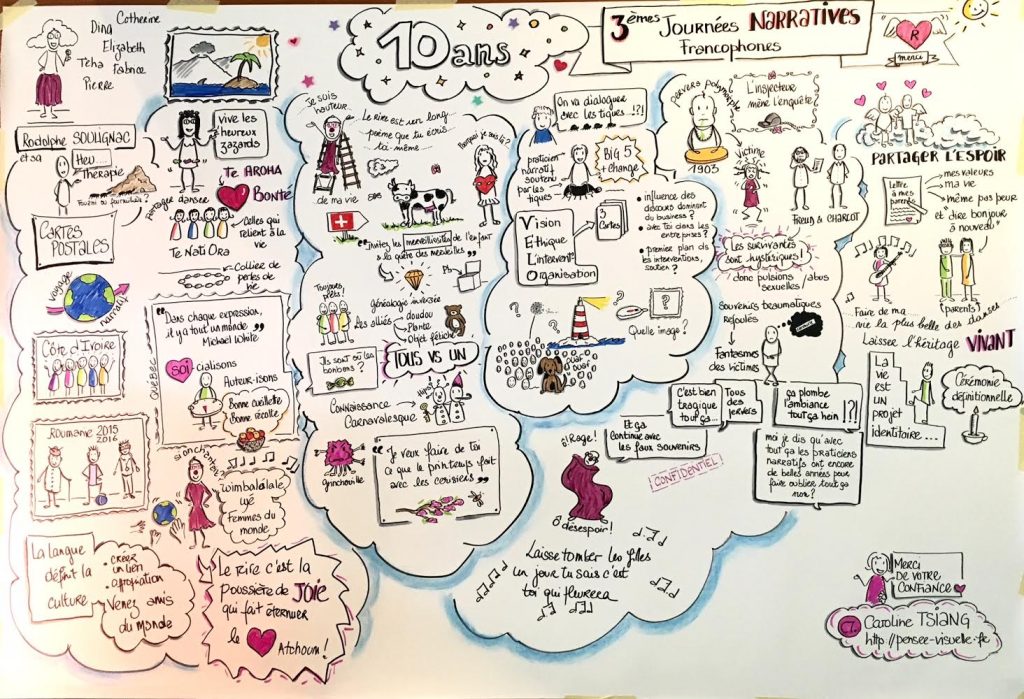 10 ans
3èmes JOURNÉES NARRATIVES
Francophones
R
merci
Catherine
Dina
Elizabeth
Tcha Fabrice
Pierre
Rodolphe SOULIGNAC
et sa
Heu...
Thérapie
Fourmi ou fourmilière ?
CARTES
POSTALES
voyage
narratif
Côte d'Ivoire
ROUMANIE 2015
2016
La langue
définit la
culture
• créer
un lien
• appropriation
• Venez amis
du monde
Vive les
heureux
zazards
Te AROHA
BONTÉ
partager danser
Celles qui
relient à la
vie
Te Nati Ora
Collier de
perles de
vie
QUÉBEC
"Dans chaque expression,
il y a tout un monde"
Michael White
SOI cialisons
Auteur-isons
Bonne cueillette
Bonne
récolte
si on chantait
Wimbalélale
uyé
Femmes du
monde
Le rire c'est la
poussière de JOIE
qui fait éternuer
le
Atchoum !
Je suis
hauteur...
de ma vie
Le rire est un long...
poème que tu écris...
toi même...
Pourquoi je ris là ?
SOS
"Invitez les merveilleuses de l'enfant
à la quête des merveilles"
Toujours
prêts !
généalogie inversée
Les alliés
doudou
Plante
Objet fétiche
Ils sont où les
bonbons ?
TOUS VS UN
Connaissance
Carnavalesque
grincheville
"Je veux faire de toi
ce que le printemps fait
avec les cerisiers"
On va dialoguer
avec les tiques...!?!
praticien
narratif
soutenu
par les
tiques
BIG 5
+ change
VISION
ETHIQUE
L'INTERVENT°
ORGANISATION
3
Cartes
• influence des
discours dominant
du business ?
• avec toi dans les
entreprises ?
• premier plan ds
les interventions,
soutien ?
?
Quelle image ?
OUAF
OUAF
Pervers polymorphe
1903
L'inspecteur
mène l'enquête
Victime
FREUD & CHARCOT
Les survivantes
sont hystériques !
donc pulsions / abus
sexuelles
Souvenirs traumatiques
refoulés
Fantasmes
des victimes
C'est bien
tragique
tout ça...
Tous
des
pervers
ça plombe
l'ambiance
tout ça hein !?!
moi je dis qu'avec
tout ça les praticiens
narratifs ont encore
de belles années pour
faire oublier tout ça
non ?
Et ça
continue avec
les faux souvenirs
CONFIDENTIEL
ô rage !
ô désespoir !
Laisse tomber les filles
un jour tu sais c'est
toi qui pleurera
PARTAGER L'ESPOIR
Lettre
à mes
parents
mes valeurs
ma vie
"même pas peur
et dire bonjour
à nouveau"
(parents)
Faire de ma...
vie la plus belle des danses...
Laissez l'héritage VIVANT
La
vie
est
UN
projet
identitaire...
Cérémonie
définitionnelle
MERCI
DE VOTRE
CONFIANCE
Caroline TSIANG
http://pensee-visuelle.fr